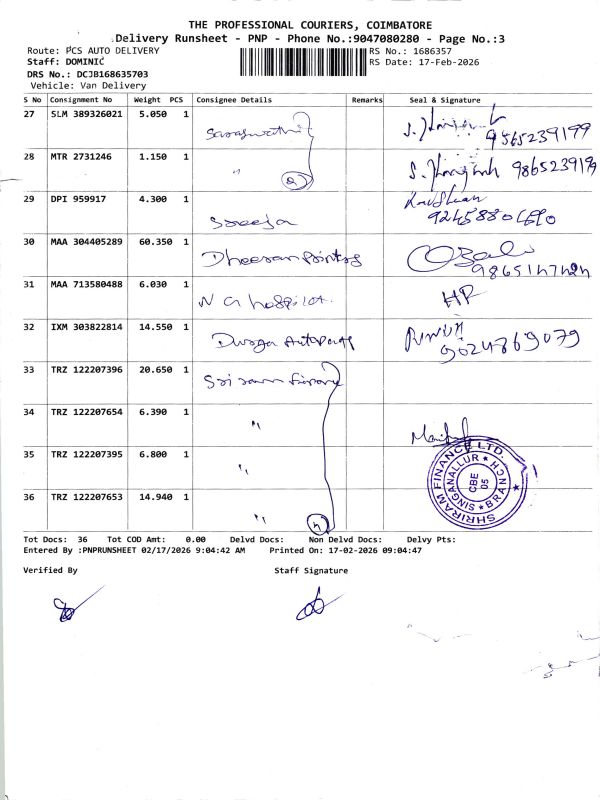 THE PROFESSIONAL COURIERS, COIMBATORE
Delivery Runsheet - PNP - Phone No.:9047080280 - Page No.:3
Route: PCS AUTO DELIVERY
RS No.: 1686357
Staff: DOMINIC
RS Date: 17-Feb-2026
DRS No.: DCJB168635703
Vehicle: Van Delivery
S No Consignment No Weight PCS Consignee Details Remarks Seal & Signature
27 SLM 389326021 5.050 1 Saraswathi 9565239199
28 MTR 2731246 1.150 1 " 9865239199
29 DPI 959917 4.300 1 Sreeja
30 MAA 304405289 60.350 1 Dheeran Prints
31 MAA 713580488 6.030 1 N G hospital. HR
32 IXM 303822814 14.550 1 Durga Autoparts 9024869079
33 TRZ 122207396 20.650 1 Sri ram finance
34 TRZ 122207654 6.390 1 "
35 TRZ 122207395 6.800 1 "
36 TRZ 122207653 14.940 1 "
SHRIRAM FINANCE LTD.
SINGANALLUR BRANCH
CBE
05
Tot Docs: 36 Tot COD Amt: 0.00 Delvd Docs: Non Delvd Docs: Delvy Pts:
Entered By :PNPRUNSHEET 02/17/2026 9:04:42 AM Printed On: 17-02-2026 09:04:47
Verified By Staff Signature